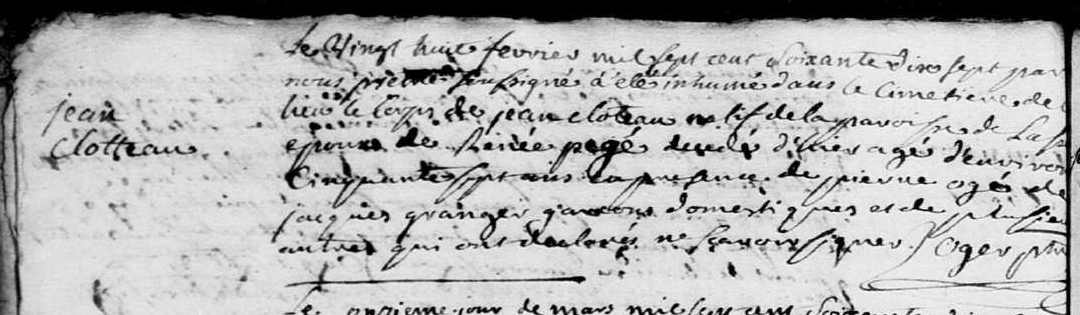 Le Vingt huit fevrier mil sept cent soixante dix sept par
nous prêtre soussigné a été inhumé dans le cimetiere de
jean
Clotteau.
lieu le corps de jean cloteau natif de la paroisse de
epoux de Renée pagé decedé d'hier agé d'environ
Cinquante sept ans en presence de pierre ogé de
jacques granger garcons domestiques et de plusieu
autres qui ont declarés ne scavoir signer. J oger ptre
Le onzieme jour de mars mil sept cent soixante